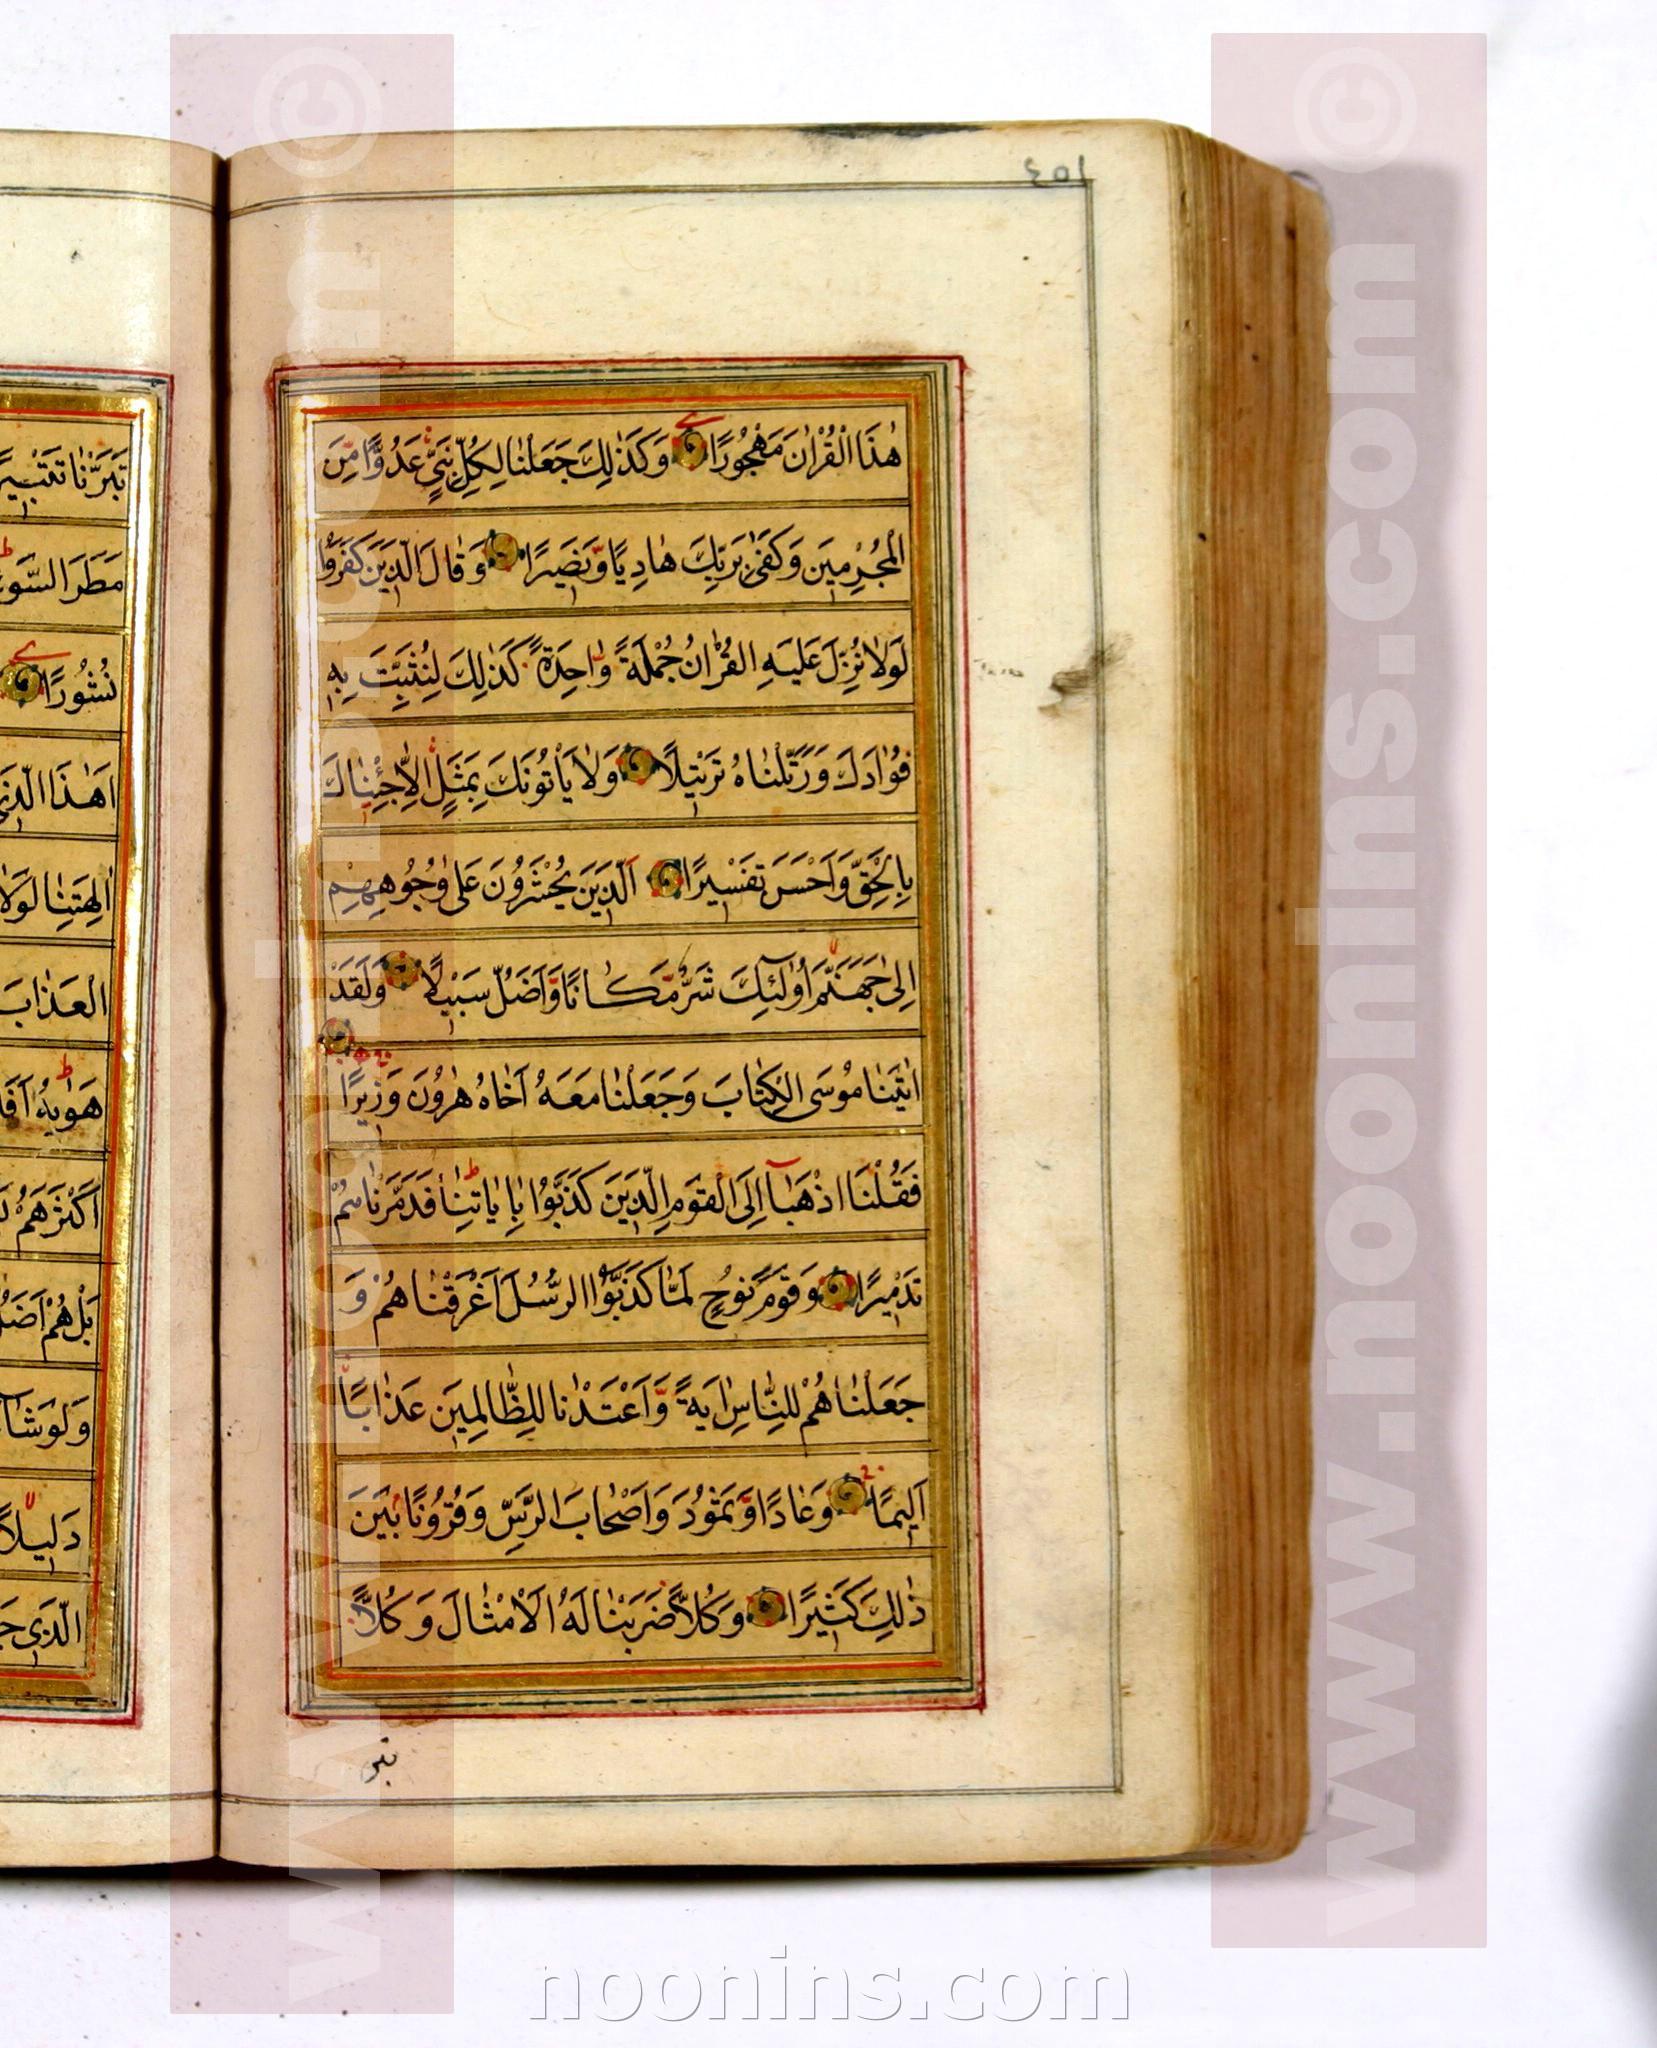 هٰذَا الْقُرْاٰنَ مَهْجُورًا وَكَذٰلِكَ جَعَلْنٰا لِكُلِّ نَبِيٍّ عَدُوًّا مِنَ
الْمُجْرِمِينَ وَكَفىٰ بِرَبِّكَ هٰادِيًا وَنَصِيرًا وَقٰالَ الَّذِينَ كَفَرُوا
لَوْلاٰ نُزِّلَ عَلَيْهِ الْقُرْاٰنُ جُمْلَةً وٰاحِدَةً كَذٰلِكَ لِنُثَبِّتَ بِهِ
فُؤٰادَكَ وَرَتَّلْنٰاهُ تَرْتِيلًا وَلاٰ يَأْتُونَكَ بِمَثَلٍ اِلاّٰ جِئْنٰاكَ
بِالْحَقِّ وَاَحْسَنَ تَفْسِيرًا اَلَّذِينَ يُحْشَرُونَ عَلىٰ وُجُوهِهِمْ
اِلىٰ جَهَنَّمَ اُولٰئِكَ شَرٌّ مَكٰانًا وَاَضَلُّ سَبِيلًا وَلَقَدْ
اٰتَيْنٰا مُوسَى الْكِتٰابَ وَجَعَلْنٰا مَعَهُ اَخٰاهُ هٰرُونَ وَزِيرًا
فَقُلْنَا اذْهَبٰا اِلَى الْقَوْمِ الَّذِينَ كَذَّبُوا بِاٰيٰاتِنٰا فَدَمَّرْنٰاهُمْ
تَدْمِيرًا وَقَوْمَ نُوحٍ لَمّٰا كَذَّبُوا الرُّسُلَ اَغْرَقْنٰاهُمْ وَ
جَعَلْنٰاهُمْ لِلنّٰاسِ اٰيَةً وَاَعْتَدْنٰا لِلظّٰالِمِينَ عَذٰابًا
اَلِيمًا وَعٰادًا وَثَمُودَ وَاَصْحٰابَ الرَّسِّ وَقُرُونًا بَيْنَ
ذٰلِكَ كَثِيرًا وَكُلًّا ضَرَبْنٰا لَهُ الْاَمْثٰالَ وَكُلًّا
تبر
تَبَّرْنٰا تَتْبِيرًا
مَطَرَ السَّوْءِ
نُشُورًا
اَهٰذَا الَّذِي
اٰلِهَتِنٰا لَوْلاٰ
الْعَذٰابَ
هَوٰيهُ
اَكْثَرَهُمْ
بَلْ هُمْ اَضَلُّ
وَلَوْ شٰاءَ
دَلِيلًا
الَّذِي
www.noonins.com ©
www.noonins.com ©
noonins.com